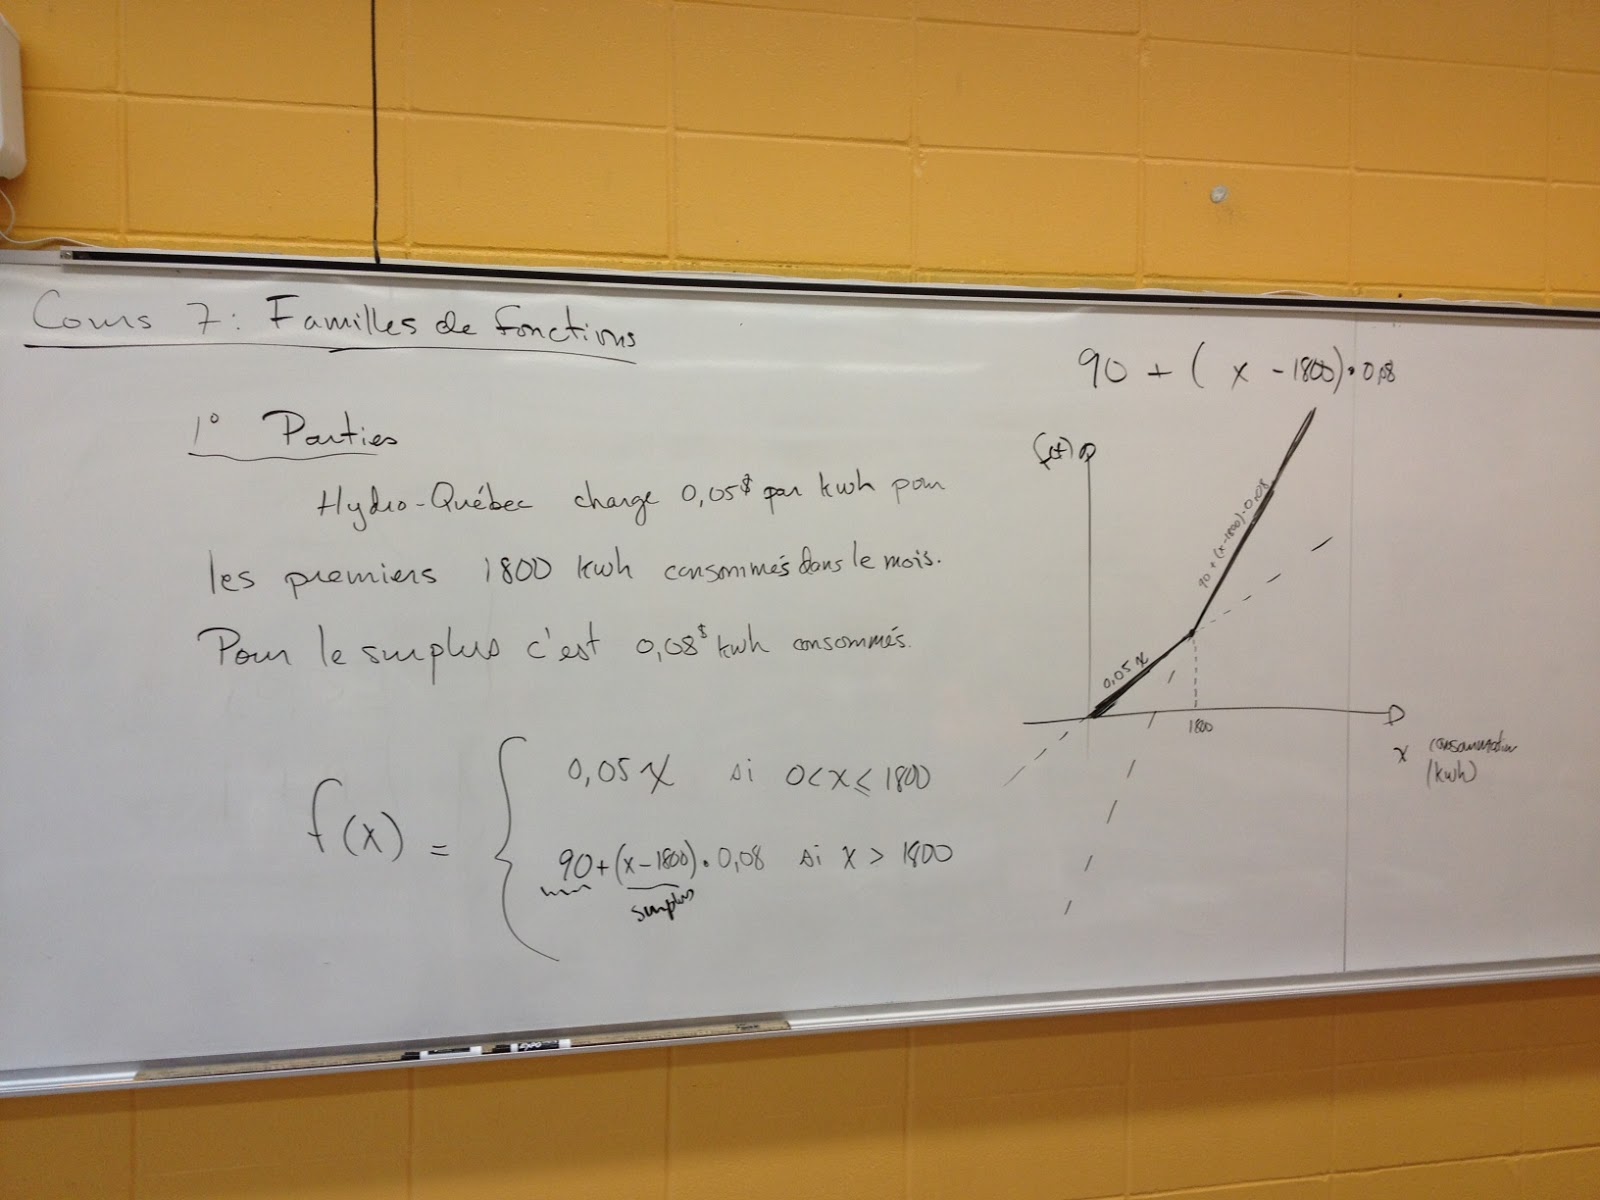 Cours 7: Familles de fonctions
1° Parties
Hydro-Québec charge 0,05$ par kwh pour
les premiers 1800 kwh consommés dans le mois.
Pour le surplus c'est 0,08$ kwh consommés.
f(x) = { 0,05x si 0<x≤1800
90+(x-1800)•0,08 si x > 1800
surplus
90 + ( x - 1800)•0,08
90 + (x-1800)•0,08
0,05x
1800
x consommation
(kwh)